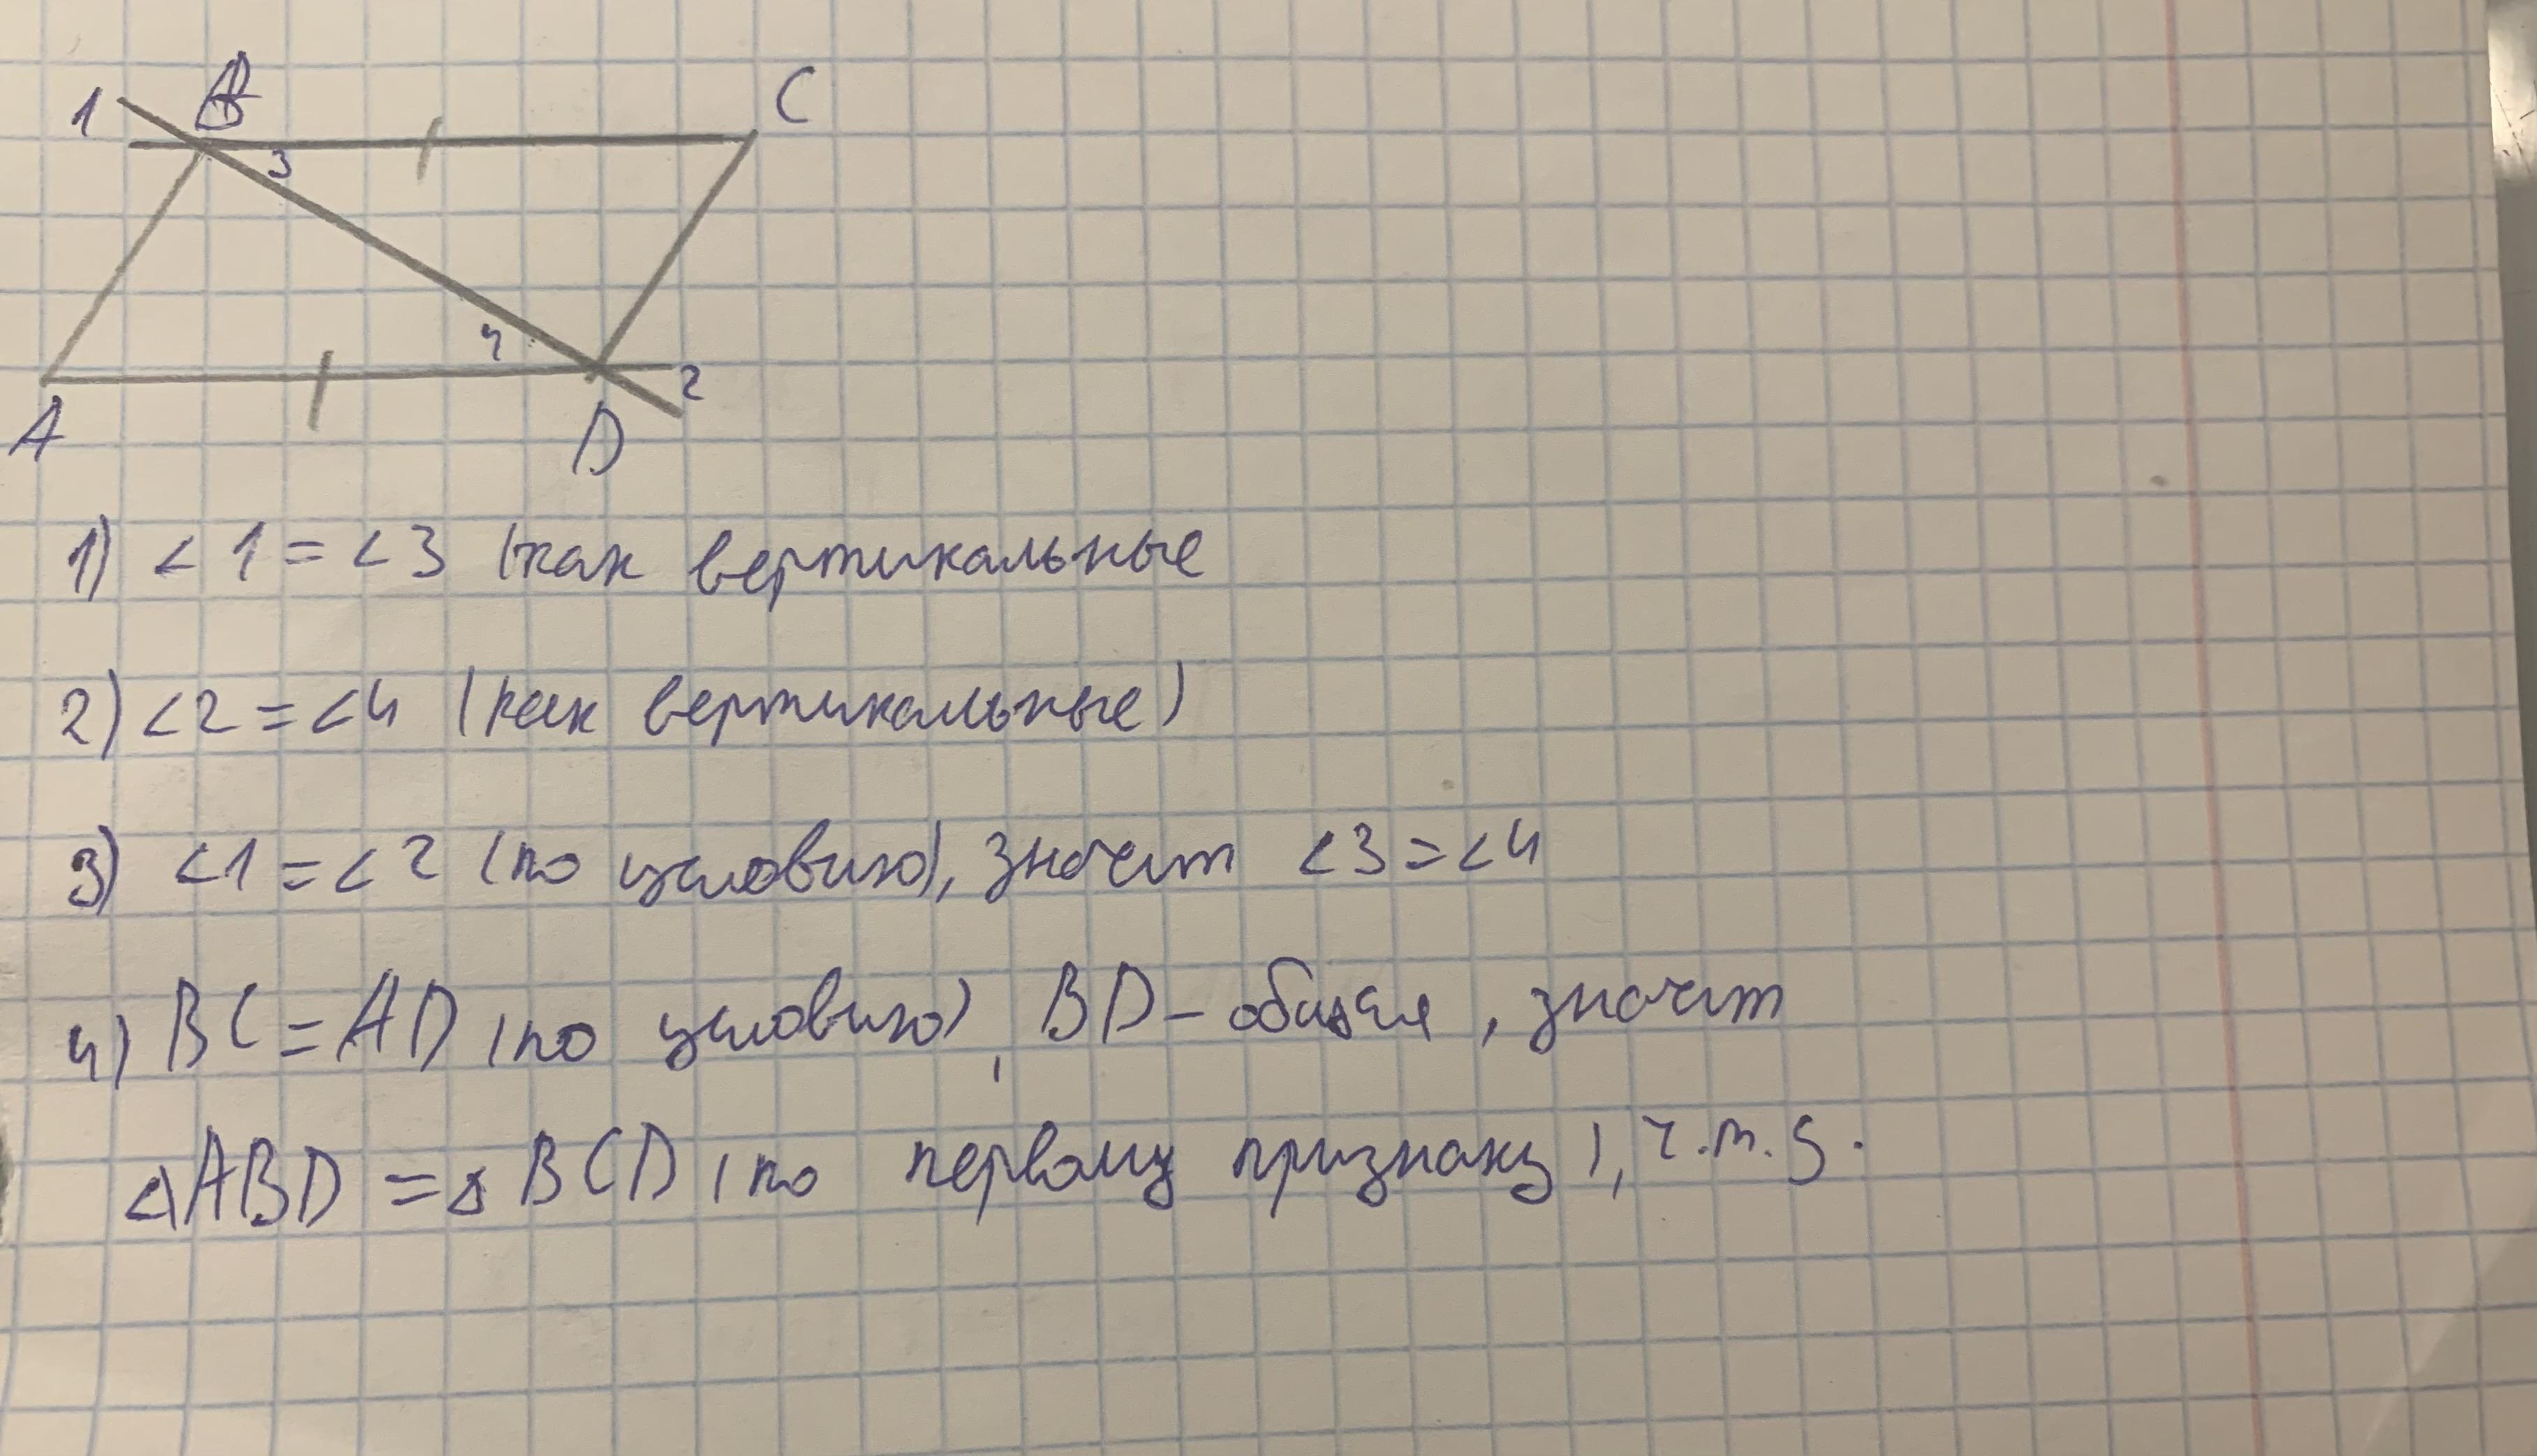 1 B C
3
4
2
A D
1) <1 = <3 (как вертикальные
2) <2 = <4 (как вертикальные)
3) <1 = <2 (по условию), значит <3 = <4
4) BC = AD (по условию), BD – общая, значит
△ABD = △BCD (по первому признаку), ч.т.д.